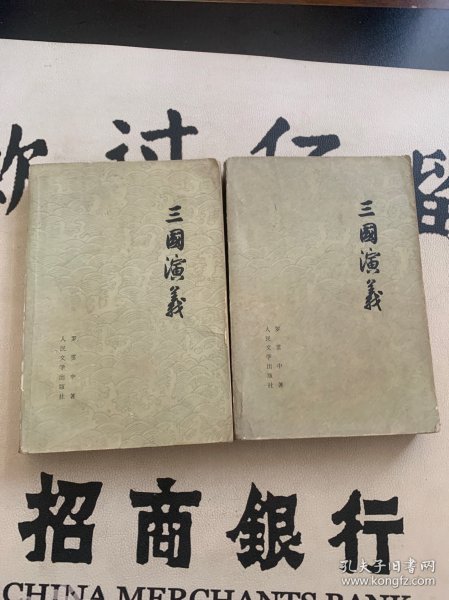 三國演義
罗贯中著
人民文学出版社
三國演義
罗贯中著
人民文学出版社
招商銀行
CHINA MERCHANTS BANK
孔夫子旧书网
www.kongfz.com